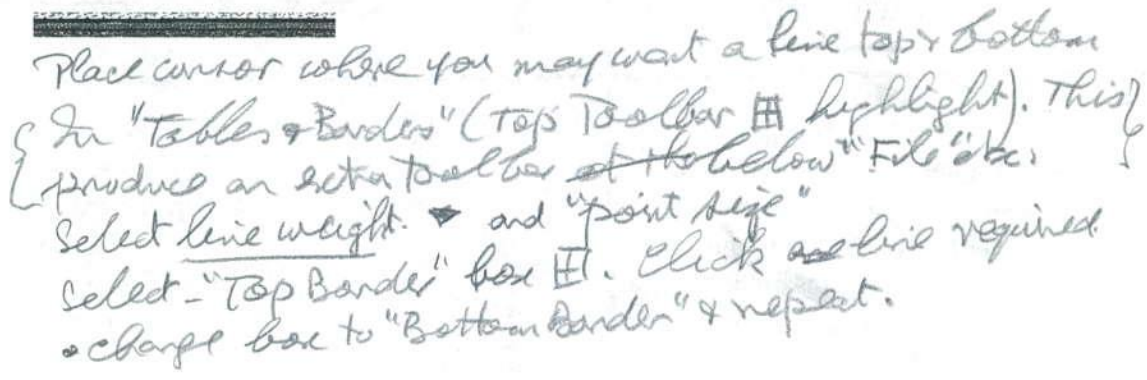 Place cursor where you may want a line top & bottom
In "Tables & Borders" (Top Toolbar highlight). This
produce an extra Toolbar at the below "File" etc.
Select line weight. and "point size"
Select - "Top Border" box. Click line required.
• change box to "Bottom Border" & repeat.